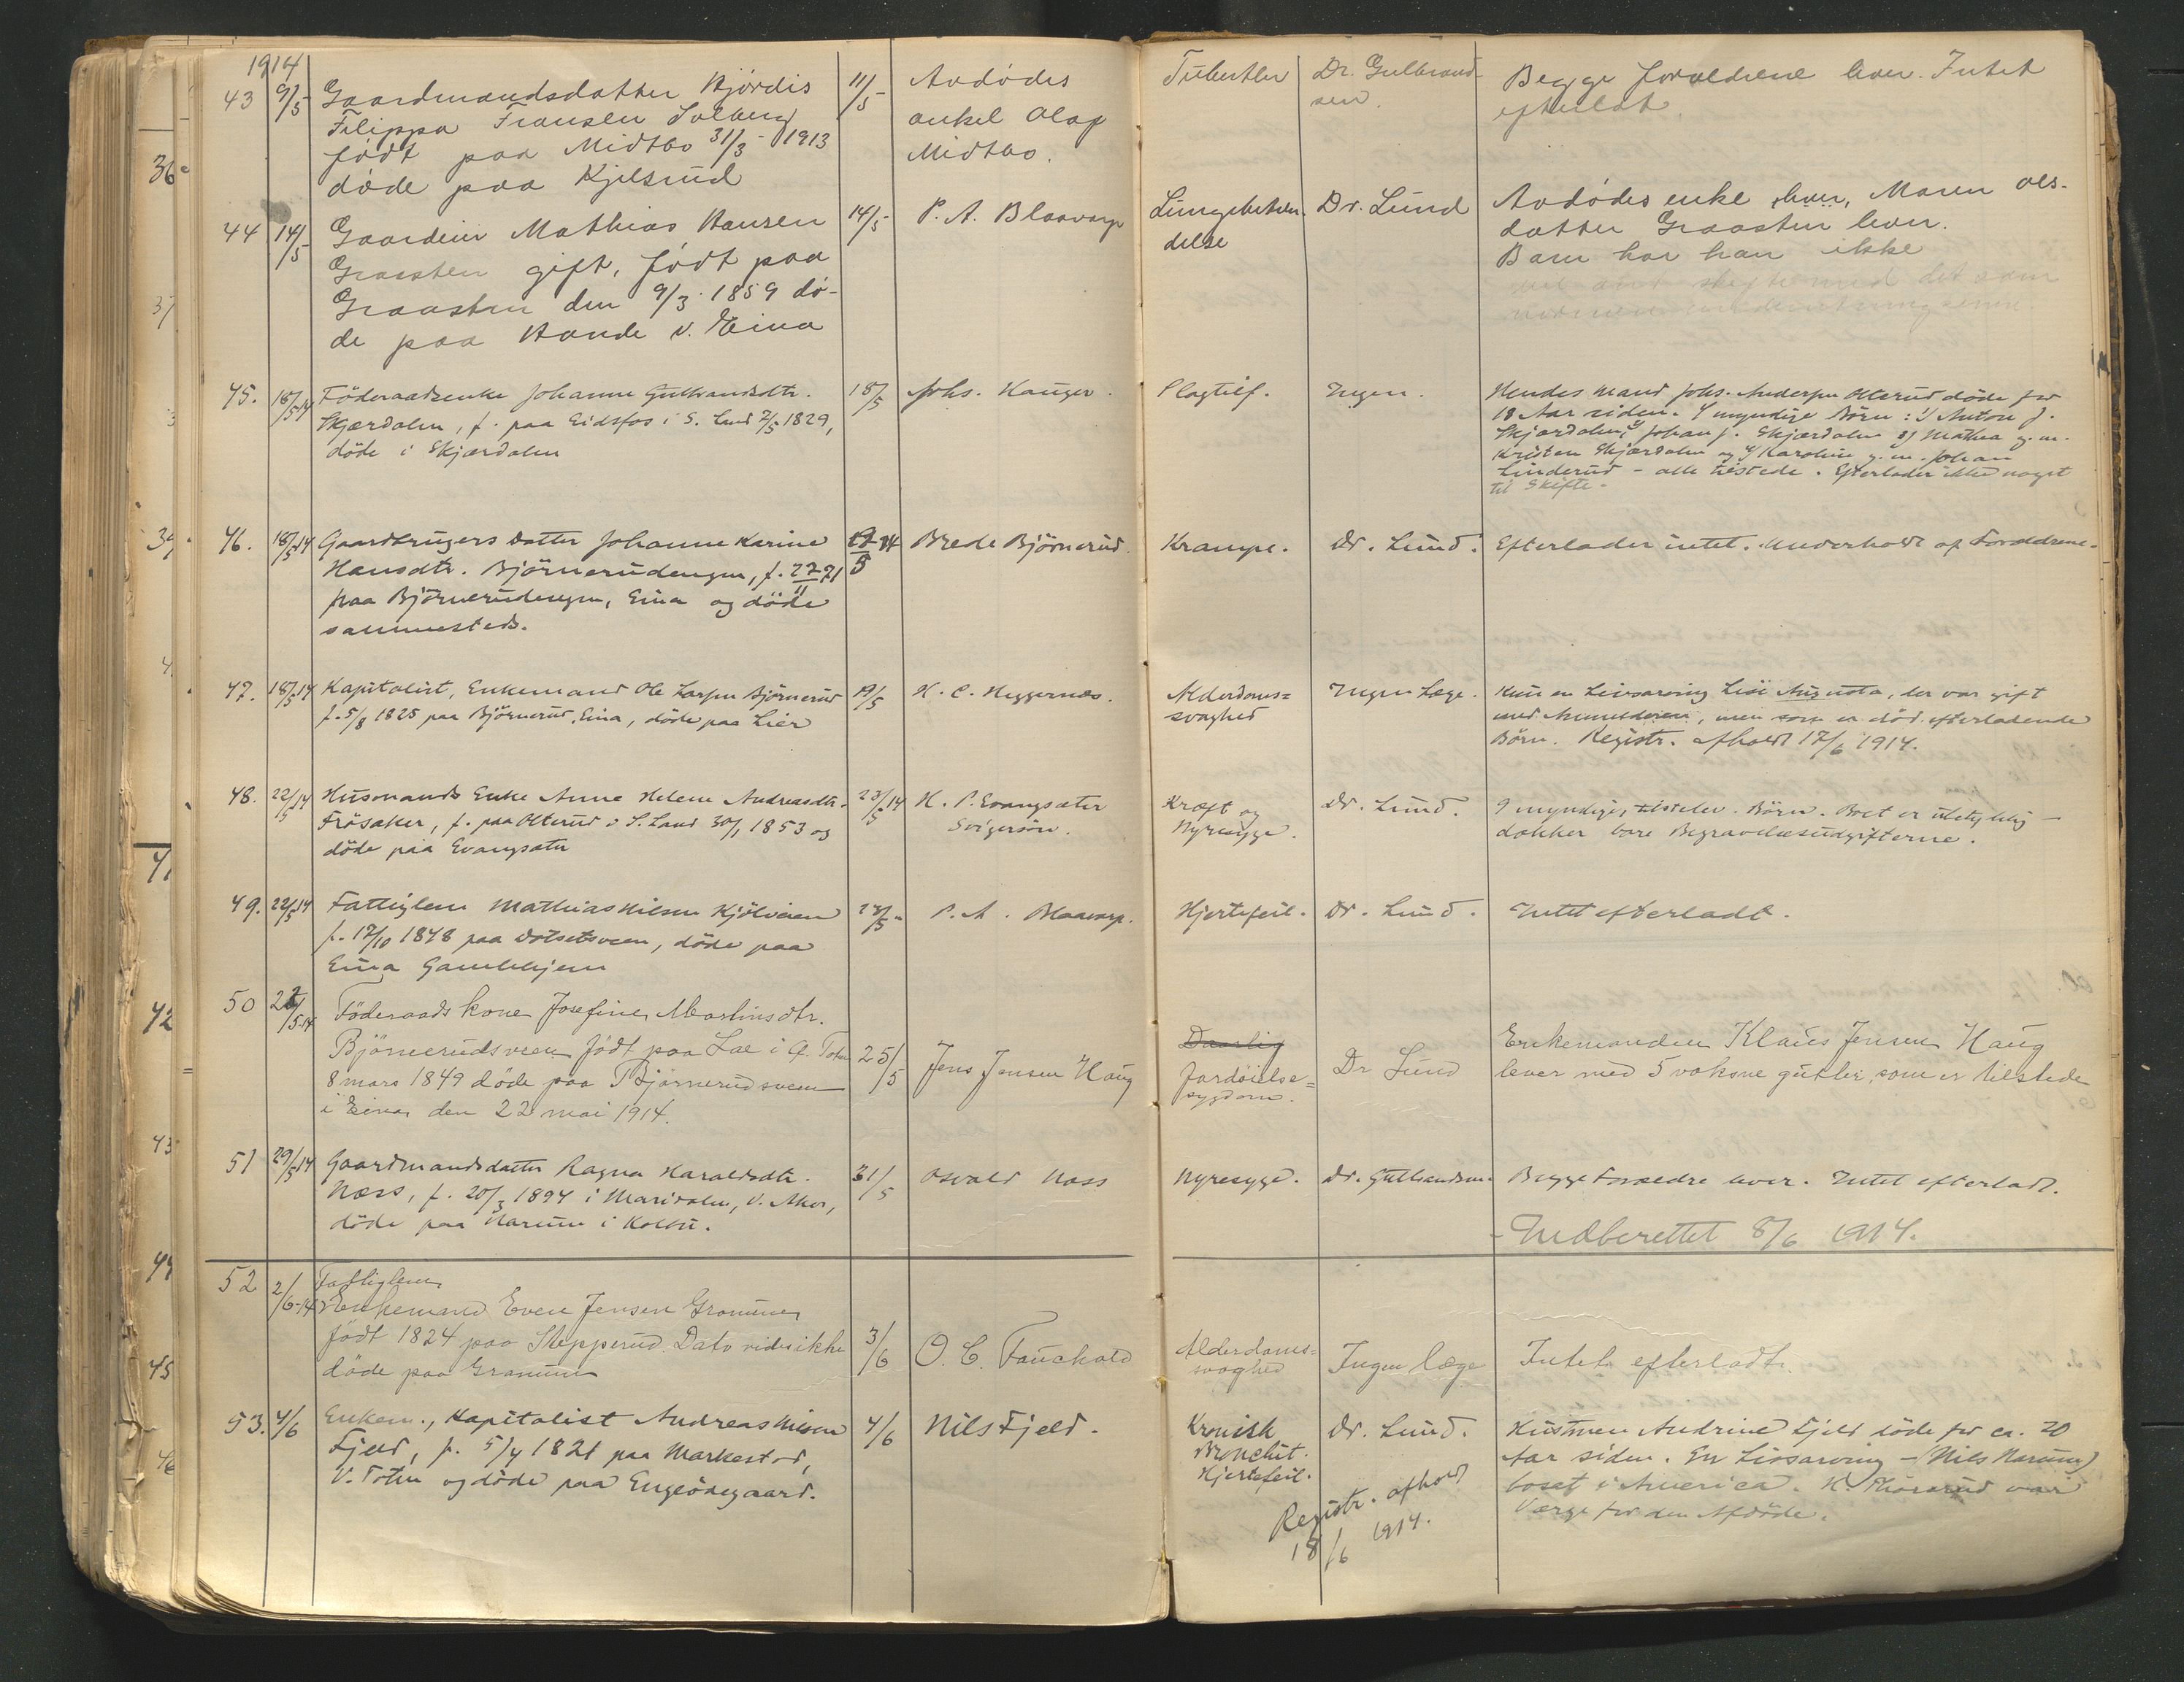 1914
43 9/5- Gaardmandsdatter Hjørdis 11/5- Avdødes Tuberkler Dr. Gulbrand- Begge forældrene lever. Intet
Filippa Fransen Solberg onkel Olaf sen. efterladt.
født paa Midtbo 31/3- 1913 Midtbo.
døde paa Kjelsrud
44 14/5- Gaardeier Mathias Hansen 14/5- P. A. Blaavarp Lungebetæn- Dr. Lund Avdødes enke lever, Maren Ols-
Graasten gift, født paa delse datter Graasten lever.
Graasten den 9/3 1859 dø- Barn har han ikke
de paa Haande v. Eina
45. 18/5 14 Föderaadsenke Johanne Gulbrandsdtr. 18/5 Johs. Hauger. Slagtilf. Ingen. Hendes mand Johs. Andersen Olterud döde for
Skjærdalen, f. paa Eidsfos i S. Land 2/5 1829, 18 Aar siden. 4 myndige Börn: 1) Anton J.
döde i Skjærdalen Skjærdalen, 2) Johan J. Skjærdalen 3) Mathea g. m.
Kristen Skjærdalen og 4) Karoline g. m. Johan
Linderud - alle tilstede. Efterlader ikke noget
til Skifte.
46. 18/5 14 Gaardbrugers datter Johanne Karine 19/5 14 Brede Björnerud. Krampe. Dr. Lund. Efterlader intet. Underholdt af Forældrene.
Hansdtr. Björnerudengen, f. 22/11 71
paa Björnerudengen, Eina og döde
sammesteds.
47. 18/5 14 Kapitalist, Enkemand Ole Larsen Björnerud 19/5 H. C. Heggernæs. Alderdoms= Ingen Læge. Kun en Livsarving Lise Augusta, der var gift
f. 5/8 1825 paa Björnerud, Eina, döde paa Lier svaghed med, men som er död efterladende
Börn. Registr. afholdt 17/6 1914.
48. 22/5 14 Husmands Enke Anne Helene Andreasdtr. 23/5 14 H. P. Evangsæter Kræft og Dr. Lund. 9 myndige, tilstedev. Börn. Boet er ubetydelig -
Frösaker, f. paa Olterud i S. Land 30/1 1853 og Svigersön. Nyresyge. dækker bare Begravelsesudgifterne.
döde paa Evangsæter
49. 22/5 14 Fattiglem Mathias Nilsen Kjölveien 23/5 - P. A. Blaavarp. Hjertefeil. Dr. Lund. Intet efterladt.
f. 17/10 1848 paa Dotsetsveen, döde paa
Eina Gamlehjem
50 22/5-14 Föderaads kone Josefine Martinsdtr.
Björnerudsveen født paa Lae i Ø. Toten 25/5 Jens Jensen Haug Daarlig Dr Lund Enkemanden Klaus Jensen Haug
8 mars 1849 døde paa Björnerudsveen Fordöielse= lever med 5 voksne gutter, som er tilstede
i Eina den 22 mai 1914. sygdom.
51 29/5 14 Gaardmandsdatter Ragna Haraldsdtr. 31/5 Osvald Næss Nyresyge. Dr. Gulbrandsen. Begge Forældre lever. Intet efterladt.
Næss, f. 20/3 1894 i Maridalen, V. Aker,
döde paa Narum i Kolbu.
Indberettet 8/6 1914.
52 2/6-14 Fattiglem
Enkemand Even Jensen Granum
født 1824 paa Stepperud. Dato vides ikke 3/6 O. C. Fauchald Alderdoms= Ingen læge Intet efterladt.
døde paa Granum svaghed
53. 4/6 Enkem., Kapitalist Andreas Nilsen 4/6 Nils Fjeld. Kronisk Dr. Lund. Kustruen Andrine Fjeld döde for ca. 20
Fjeld, f. 5/4 1821 paa Markestad, Bronchit. Aar siden. En Livsarving - (Nils Narum)
V. Toten og döde paa Engeödegaard. Hjertefeil. bosat i America. Thorsrud var
Registr. afhold Værge for den Afdöde.
18/6 1914.
36
37
39
41
42
43
44
45
46